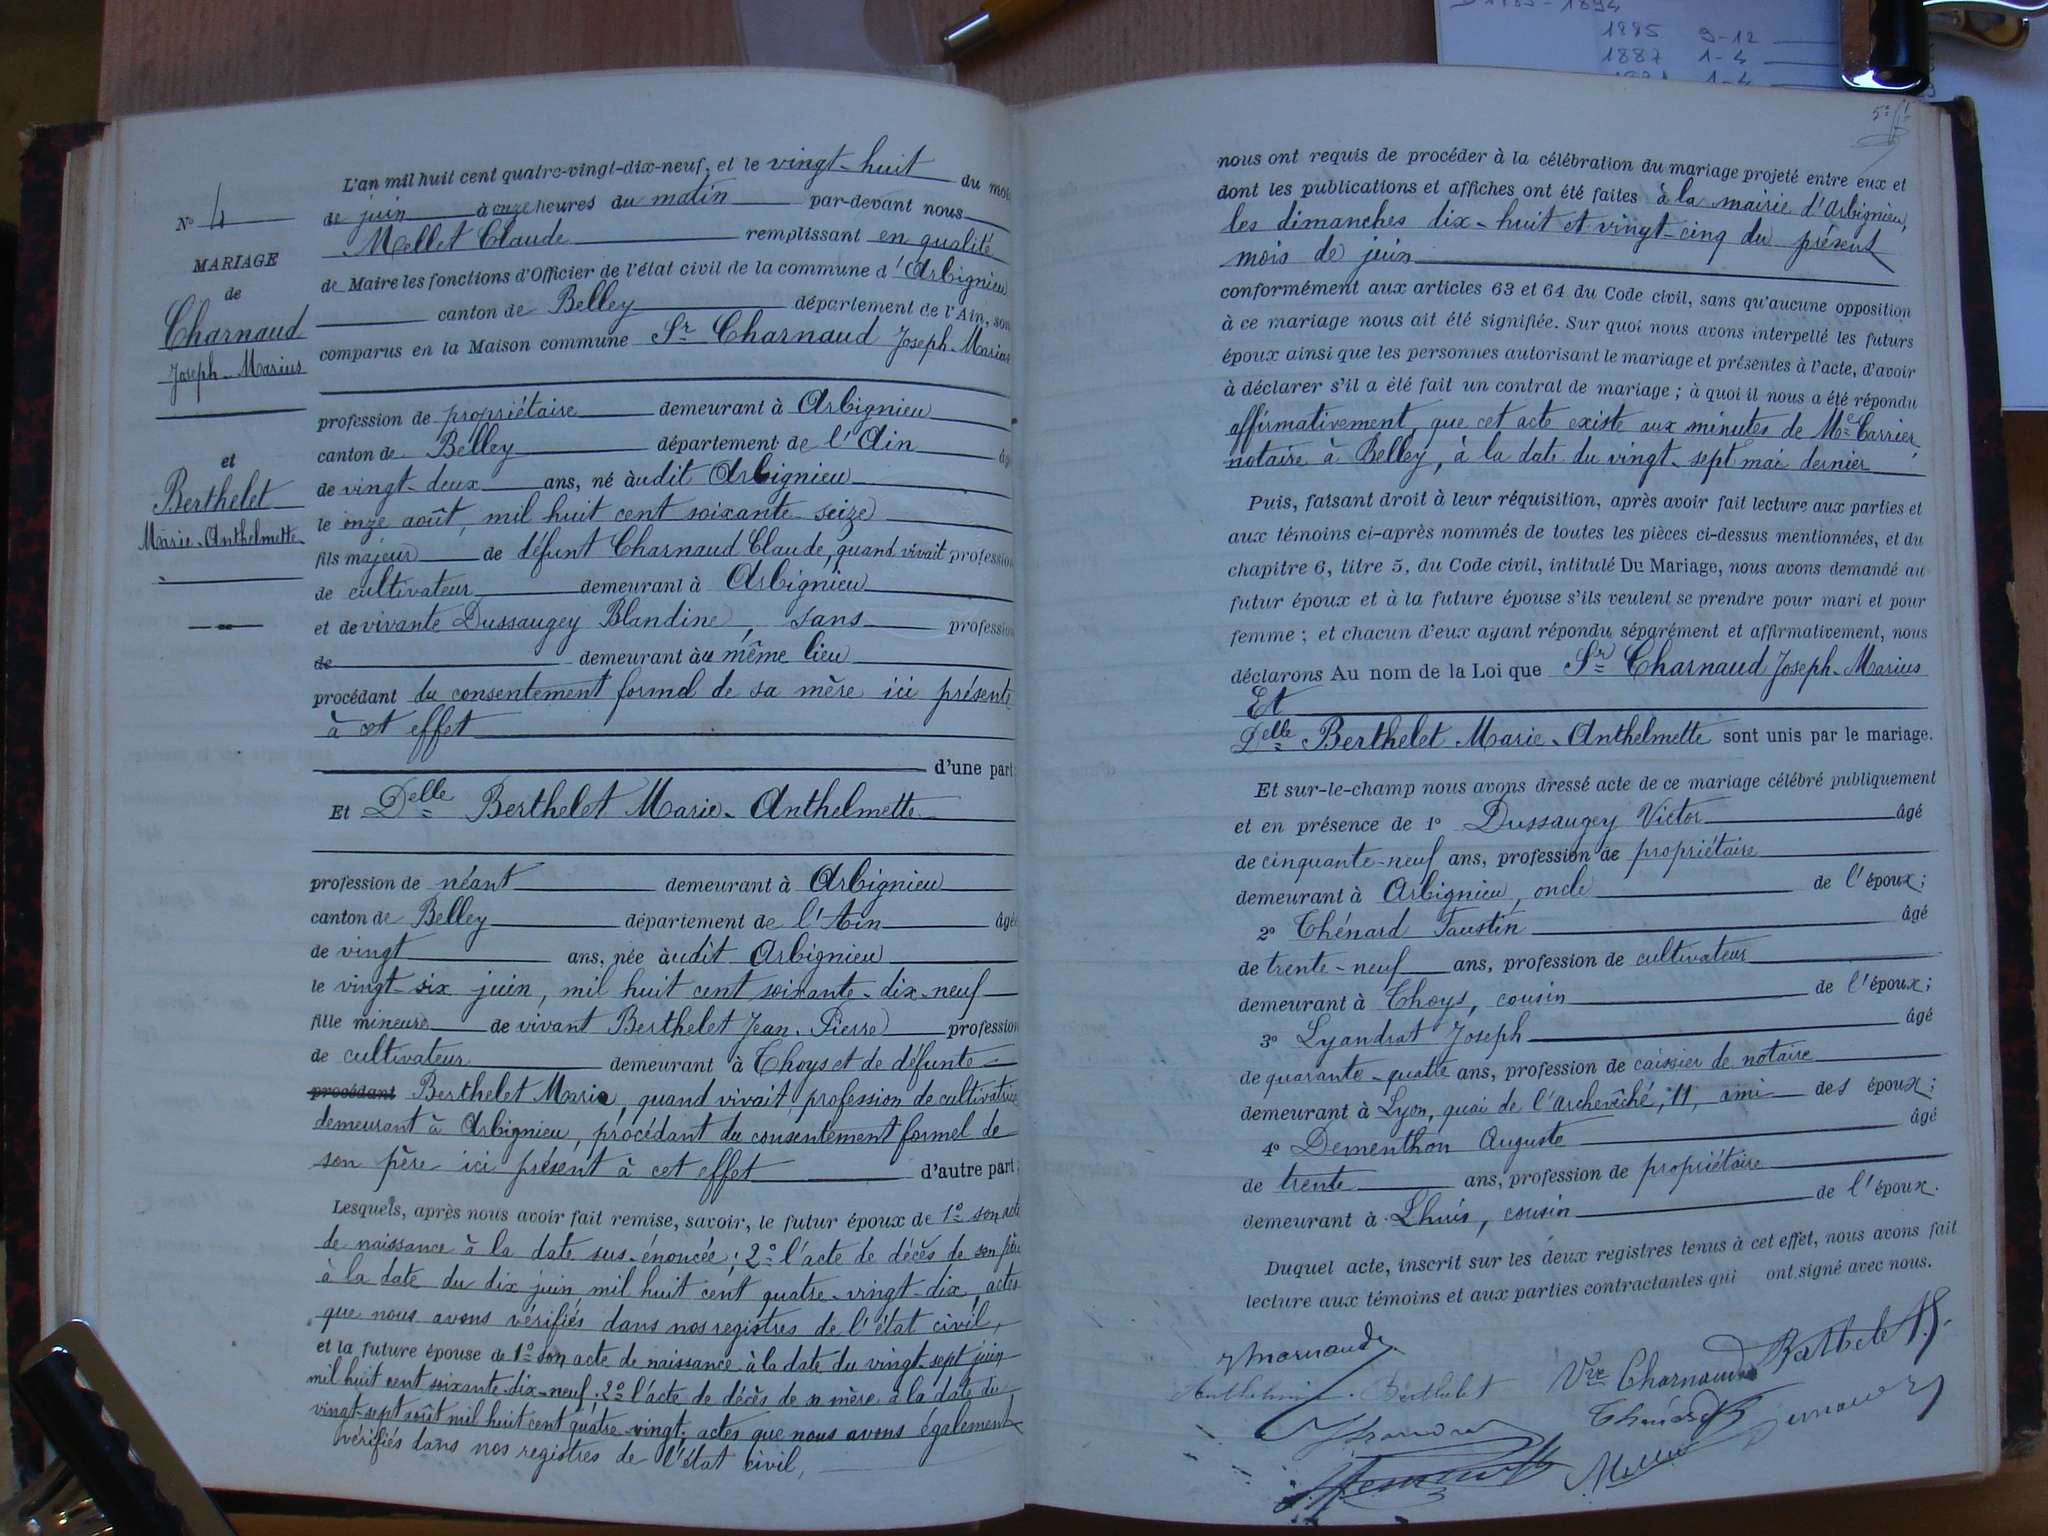 1885 9-12
1887 1-4
N° 4
MARIAGE
de
Charnaud
Joseph-Marius
et
Berthelet
Marie-Anthelmette
L'an mil huit cent quatre-vingt-dix-neuf, et le vingt-huit du mois
de juin à onze heures du matin par-devant nous
Mellet Claude remplissant en qualité
de Maire les fonctions d'Officier de l'état civil de la commune d'Arbignieu
canton de Belley département de l'Ain, son
comparus en la Maison commune Sr Charnaud Joseph-Marius
profession de propriétaire demeurant à Arbignieu
canton de Belley département de l'Ain âg
de vingt-deux ans, né àudit Arbignieu
le onze août, mil huit cent soixante-seize
fils majeur de défunt Charnaud Claude, quand vivait profession
de cultivateur demeurant à Arbignieu
et de vivante Dussaugey Blandine, sans profession
de demeurant àu même lieu
procédant du consentement formel de sa mère ici présente
à cet effet
d'une part
Et Delle Berthelet Marie-Anthelmette
profession de néant demeurant à Arbignieu
canton de Belley département de l'Ain âgé
de vingt ans, née àudit Arbignieu
le vingt-six juin, mil huit cent soixante-dix-neuf
fille mineure de vivant Berthelet Jean-Pierre profession
de cultivateur demeurant à Thoys et de défunte
procédant Berthelet Marie, quand vivait, profession de cultivatrice
demeurant à Arbignieu, procédant du consentement formel de
son père ici présent à cet effet d'autre part;
Lesquels, après nous avoir fait remise, savoir, le futur époux de 1° son acte
de naissance à la date sus-énoncée; 2° l'acte de décès de son père
à la date du dix juin mil huit cent quatre-vingt-dix, actes
que nous avons vérifiés dans nos registres de l'état civil,
et la future épouse de 1° son acte de naissance à la date du vingt-sept juin
mil huit cent soixante-dix-neuf; 2° l'acte de décès de sa mère à la date du
vingt-sept août mil huit cent quatre-vingt; actes que nous avons également
vérifiés dans nos registres de l'état civil,
nous ont requis de procéder à la célébration du mariage projeté entre eux et
dont les publications et affiches ont été faites à la mairie d'Arbignieu,
les dimanches dix-huit et vingt-cinq du présent
mois de juin
conformément aux articles 63 et 64 du Code civil, sans qu'aucune opposition
à ce mariage nous ait été signifiée. Sur quoi nous avons interpellé les futurs
époux ainsi que les personnes autorisant le mariage et présentes à l'acte, d'avoir
à déclarer s'il a été fait un contrat de mariage; à quoi il nous a été répondu
affirmativement, que cet acte existe aux minutes de Me Carrier,
notaire à Belley, à la date du vingt-sept mai dernier
Puis, faisant droit à leur réquisition, après avoir fait lecture aux parties et
aux témoins ci-après nommés de toutes les pièces ci-dessus mentionnées, et du
chapitre 6, titre 5, du Code civil, intitulé Du Mariage, nous avons demandé au
futur époux et à la future épouse s'ils veulent se prendre pour mari et pour
femme; et chacun d'eux ayant répondu séparément et affirmativement, nous
déclarons Au nom de la Loi que Sr Charnaud Joseph-Marius
Et
Delle Berthelet Marie-Anthelmette sont unis par le mariage.
Et sur-le-champ nous avons dressé acte de ce mariage célébré publiquement
et en présence de 1° Dussaugey Victor âgé
de cinquante-neuf ans, profession de propriétaire
demeurant à Arbignieu, oncle de l'époux;
2° Thénard Faustin âgé
de trente-neuf ans, profession de cultivateur
demeurant à Thoys, cousin de l'époux;
3° Lyandrat Joseph âgé
de quarante-quatre ans, profession de caissier de notaire
demeurant à Lyon, quai de l'archevêché, 11, ami des époux;
4° Dementhon Auguste âgé
de trente ans, profession de propriétaire
demeurant à Lhuis, cousin de l'époux.
Duquel acte, inscrit sur les deux registres tenus à cet effet, nous avons fait
lecture aux témoins et aux parties contractantes qui ont signé avec nous.
Vve Charnaud
Berthelet